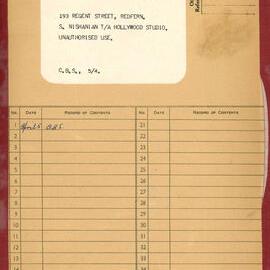 193 REGENT STREET, REDFERN.
S. NISHANIAN T/A HOLLYWOOD STUDIO.
UNAUTHORISED USE.
C.B.S., 5/A.
No. DATE RECORD OF CONTENTS No. DATE RECORD OF CONTENTS
1 21
2 22
3 23
4 24
5 25
6 26
7 27
8 28
9 29
10 30
11 31
12 32
13 33